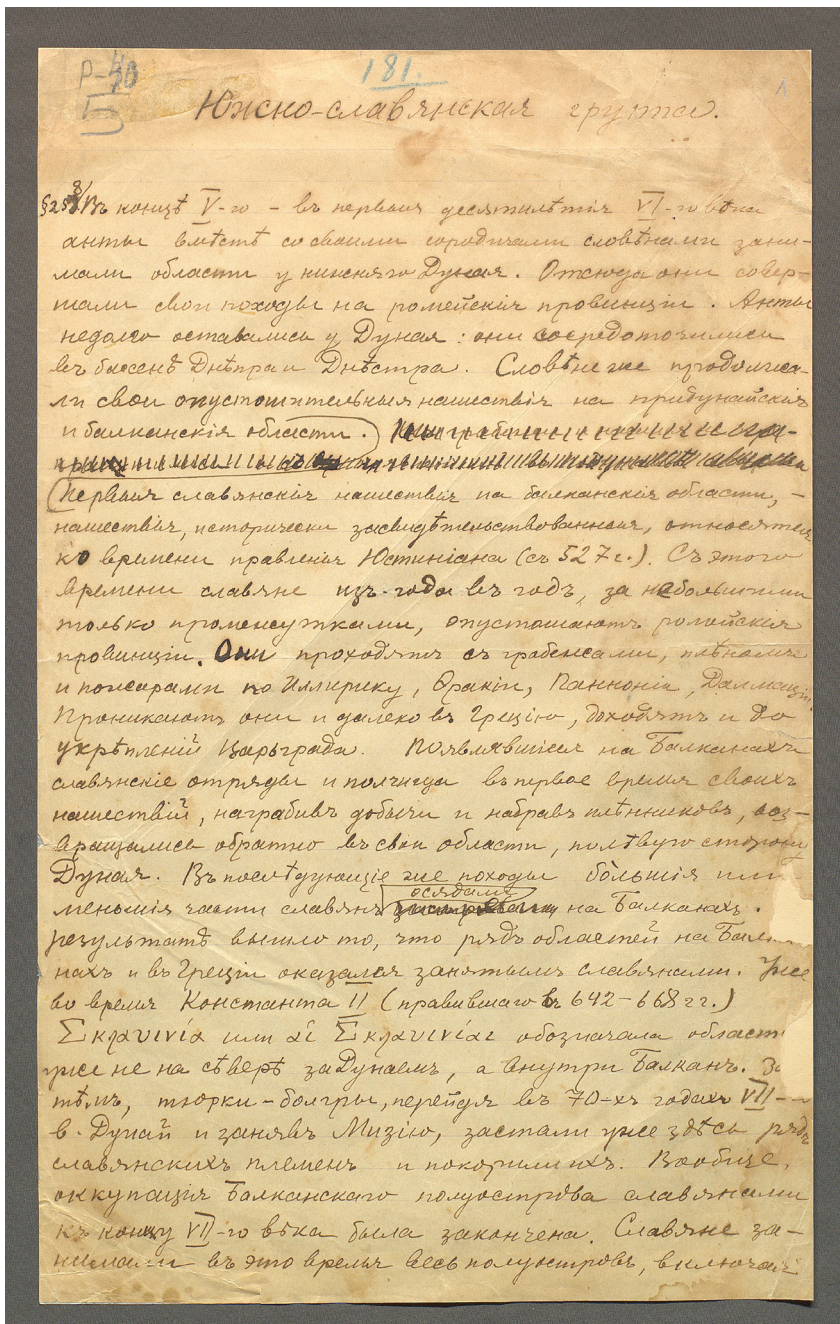 181.
Южно-славянская группа.
§25 Въ концѣ V-го – въ первыя десятилѣтія VI-го вѣка
анты вмѣстѣ со своими сородичами словѣнами зани-
мали области у нижняго Дуная. Отсюда они совер-
шали свои походы на ромейскія провинціи. Анты
недолго оставались у Дуная: они сосредоточились
въ бассенѣ Днѣпра и Днѣстра. Словѣне же продолжа-
ли свои опустошительныя нашествія на придунайскія
и балканскія области.
Первыя славянскія нашествія на балканскія области, –
нашествія, исторически засвидѣтельствованныя, относятся
ко времени правленія Юстиніана (съ 527 г.). Съ этого
времени славяне изъ-года въ годъ, за небольшими
только промежутками, опустошаютъ ромейскія
провинціи. Они проходятъ съ грабежами, плѣномъ
и пожарами по Иллирику, Ѳракіи, Панноніи, Далмаціи.
Проникаютъ они и далеко въ Грецію, доходятъ и до
укрѣпленій Царьграда. Появлявшіеся на Балканахъ
славянскіе отряды и полчища въ первое время своихъ
нашествій, награбивъ добычи и набравъ плѣнниковъ, воз-
вращались обратно въ свои области, по лѣвую сторону
Дуная. Въ послѣдующіе же походы бо́льшія или
меньшія части славянъ осядали на Балканахъ.
результатѣ вышло то, что рядъ областей на Балка-
нахъ и въ Греціи оказался занятымъ славянами. Уже
во время Константа II (правившаго въ 642–668 гг.)
Σκλαυινία или αἱ Σκλαυινίαι обозначала област
уже не на сѣверѣ за Дунаемъ, а внутри Балканъ. За
тѣмъ, тюрки-болгры, перейдя въ 70-хъ годахъ VII-
в. Дунай и занявъ Мизію, застали уже здѣсь рядъ
славянскихъ племенъ и покорили ихъ. Вообще,
оккупація Балканскаго полуострова славянами
къ концу VII-го вѣка была закончена. Славяне за-
нимали въ это время весь полуостровъ, включая